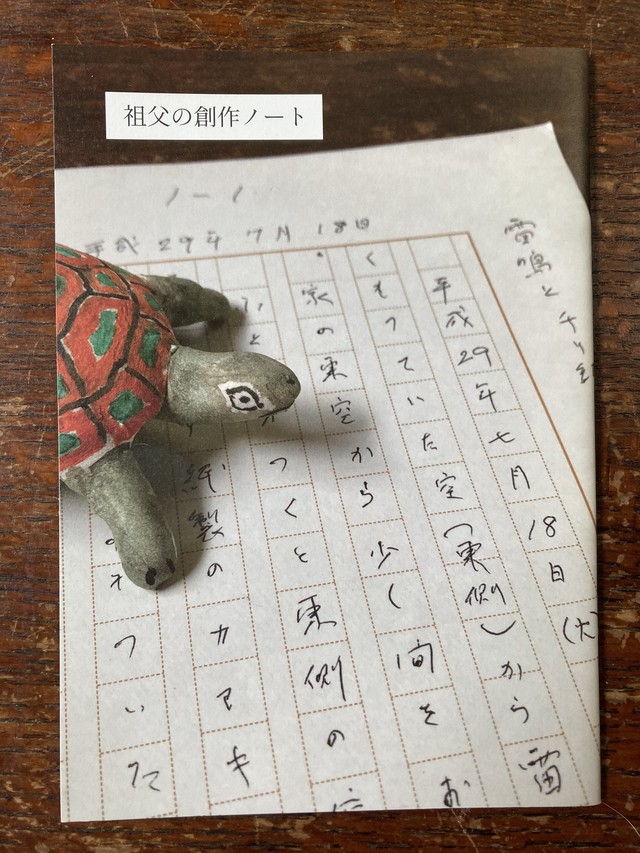 祖父の創作ノート
平成29年7月18日
雷鳴とチリ
平成29年七月18日(火
くもっていた空(東側)から雷
家の東空から少く間をお
つくと東側の
紙製のカマキ
ついた